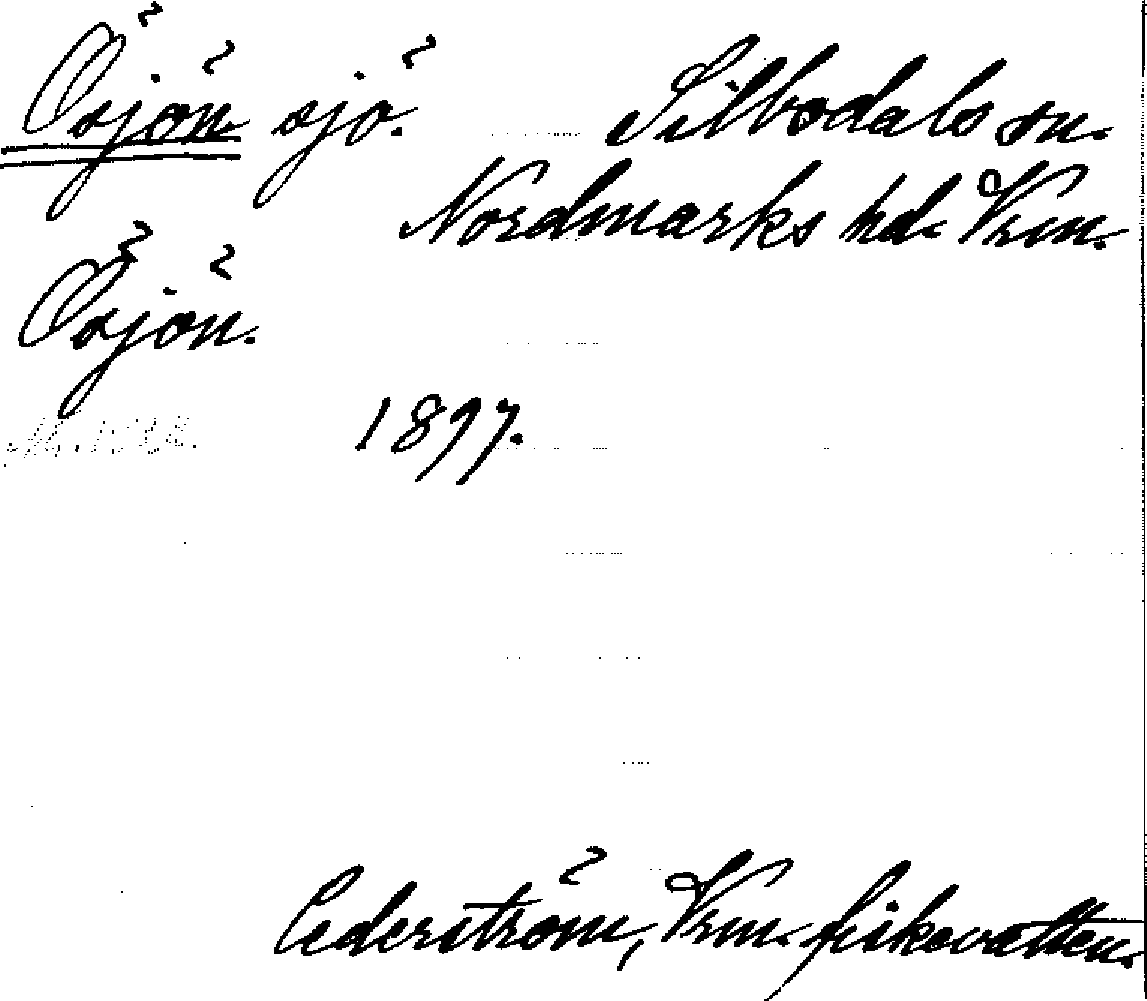 Ösjön sjö. Silbodals sn.
Nordmarks hd. Vrm.
Ösjön.
1897.
Cederström, Vrm. fiskevatten.